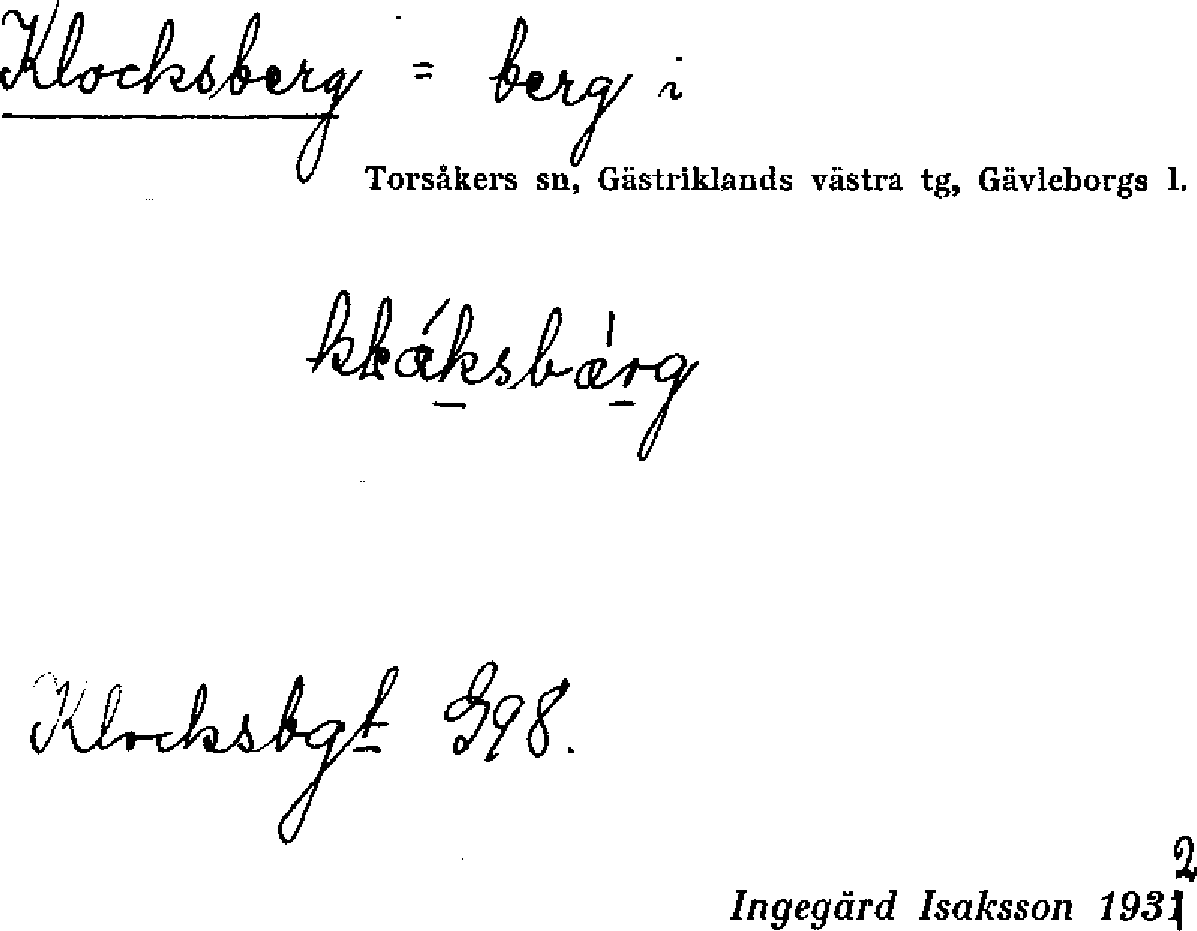 Klocksberg = berg i
Torsåkers sn, Gästriklands västra tg, Gävleborgs l.
Klocksbgt G98.
2
Ingegärd Isaksson 1931